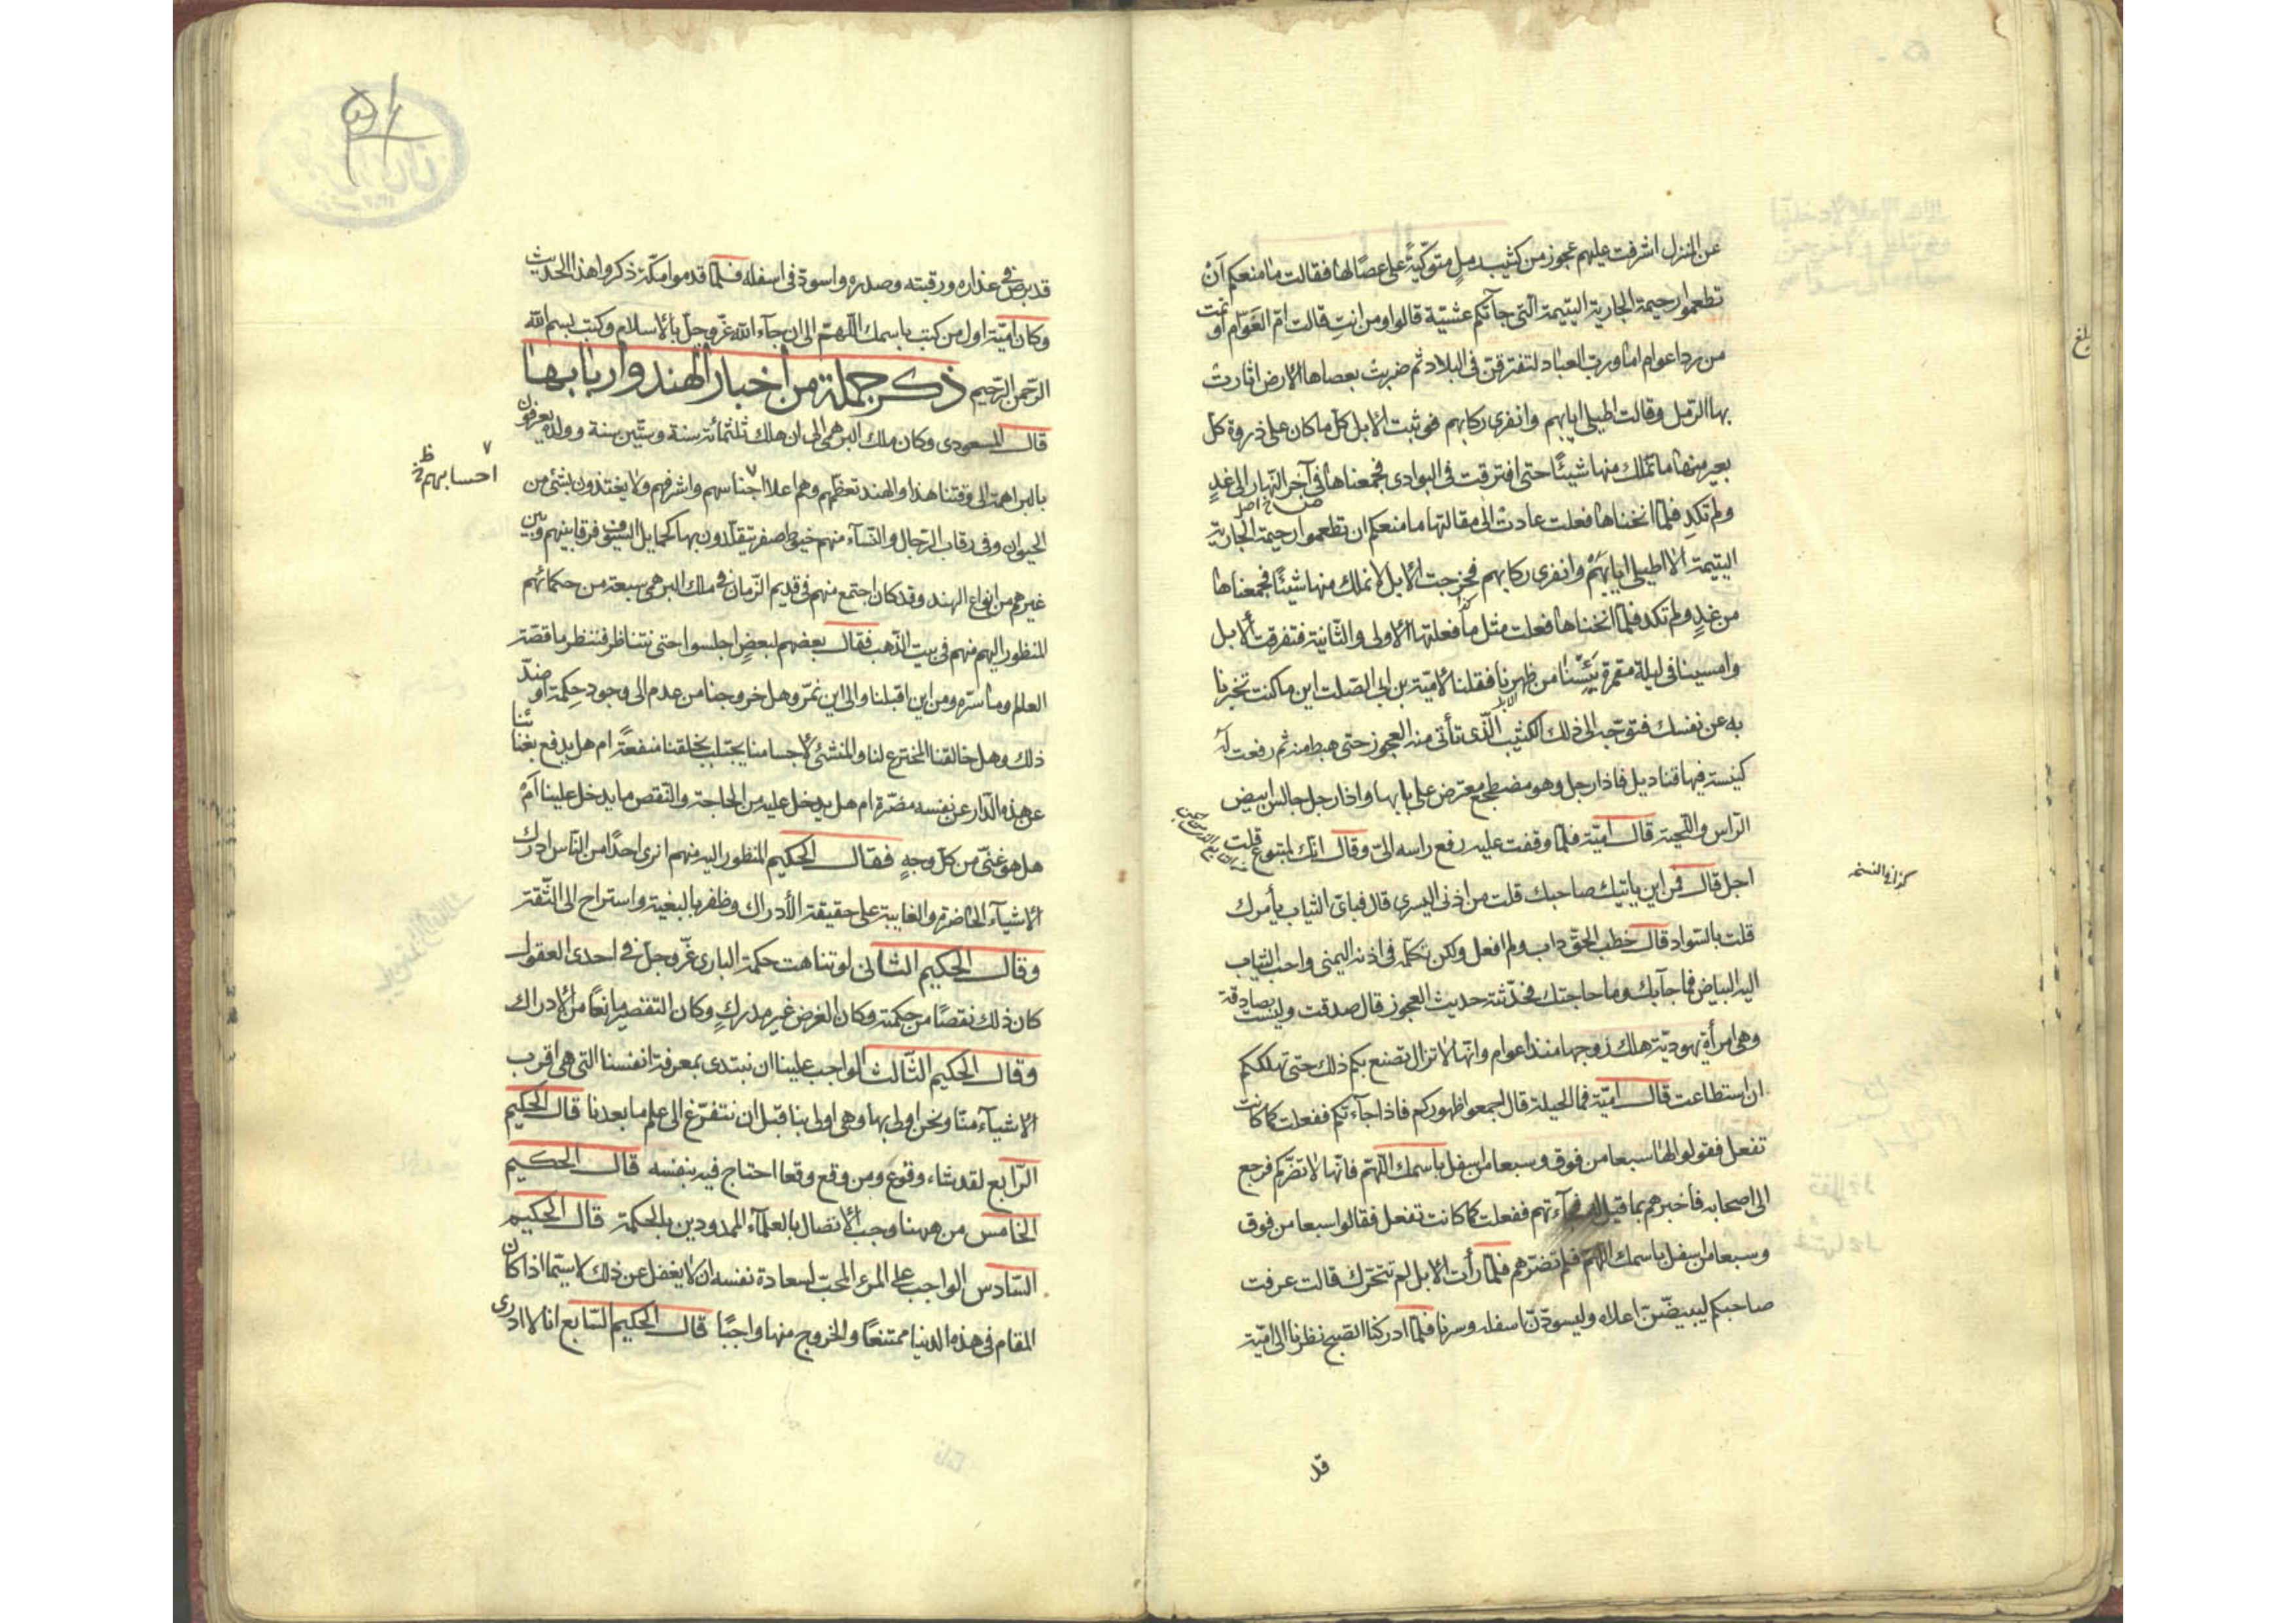 عن المنزل اشرفت عليهم عجوز من كثيب رمل متوكّيةً على عصًا لها فقالت ما منعكم اَنْ
تطعموا رحيمة الجارية اليتيمة الّتى جآتكم عشيّة قالوا ومن انتِ قالت امّ العَوّام اُو تمت
من رد اعوام اما ورب العباد لتفترقن فى البلاد ثم ضربت بعصاها الارض اثارت
بها الرّمل وقالت اطيلى ايابهم وانفرى ركابهم فوثبت الابل كلّ ما كان على ذروة كل
بعير منها ما تملك منها شيئًا حتى افترقت فى البوادى فجمعناها فى آخر النّهار الى غدٍ
ولم تكدِ فلمّا انخناها فعلت عادت الى مقالتها ما منعكم ان تطعموا رحيمة الجارية
اليتيمة الا اطيلى ايابَهُمْ وانفرى ركابهم فخرجت الابل لا نملك منها شيئًا فجمعناها
من غدٍ ولم تكد فلمّا انخناها فعلت مثل ما فعلتها الاولى والثّانية فتفرقت الابل
وامسينا فى ليلة مقمرة يَئِسْنا من ظهرنا فقلنا لاميّة بن ابى الصّلت اين ما كنت تخبرنا
به عن نفسك فتوجّه الى ذلك الكثيب الّذى تأتى منه العجوز حتى هبط منه ثم رفعت له
كنيسة فيها قناديل فاذا رجل وهو مضطجع معترض على بابها واذا رجل جالس ابيض
الرّاس واللّحية قال اميّة فلمّا وقفت عليه رفع راسه الىّ وقال انّك لمتبوع قلت
اجل قال فمن اين ياتيك صاحبك قلت من اذنى اليسرى قال فباىّ الثياب يأمرك
كذا فى النسخه
قلت بالسّواد قال خطب الحقّ داب ولم افعل ولكن تكلّمه فى اذنه اليمنى واحب الثياب
اليه البياض فما جآبك وما حاجتك فحدّثته حديث العجوز قال صدقت وليست بصادقة
وهى امرأة يهوديّة هلك زوجها منذ اعوام وانّها لا تزال تصنع بكم ذلك حتى تهلككم
ان استطاعت قال اميّة فما الحيلة قال اجمعوا ظهوركم فاذا جآءتكم ففعلت كما كانت
تفعل فقولوا لها سبعا من فوق وسبعا من اسفل باسمك اللّهمّ فانّها لا تضرّكم فرجع
الى اصحابه فاخبرهم بما قيل له فجآءتهم ففعلت كما كانت تفعل فقالوا سبعا من فوق
وسبعا من اسفل باسمك اللّهمّ فلم تضرّهم فلمّا رأت الابل لم تتحرّك قالت عرفت
صاحبكم ليبيضّنّ اعلاه وليسودّنّ اسفله وسرنا فلمّا ادركنا الصّبح نظرنا الى اميّة
قد
قد برص فى عذاره ورقبته وصدره واسودّ فى اسفله فلمّا قدموا مكّة ذكروا هذا الحديث
وكان اميّة اول من كتب باسمك اللّهمّ الى ان جآء اللّه عزّ وجلّ بالاسلام وكتب بسم اللّه
الرّحمن الرّحيم ذكر جملة من اخبار الهند واربابها
قال المسعودى وكان ملك البرهمى الى ان هلك ثلثمائة سنة وستّين سنة وولده يعرفون
بالبراهمة الى وقتنا هذا والهند تعظّمهم وهم اعلا اجناسهم واشرفهم ولا يغتذون بشئ من
احسابهم ظ
الحيوان وفى رقاب الرّجال والنّسآء منهم خيوط اصفر يتقلّدون بها كحمايل السّيوف فرقا بينهم وبين
غيرهم من انواع الهند وقد كان اجتمع منهم فى قديم الزّمان فى ملك البرهمى سبعة من حكمائهم
المنظور اليهم منهم فى بيت الذّهب فقال بعضهم لبعضٍ اجلسوا حتى نتناظر فننظر ما قصّة
العلم وما سرّه ومن اين اقبلنا والى اين نمرّ وهل خروجنا من عدم الى وجود حِكمة او ضدّ
ذلك وهل خالقنا المخترع لنا والمنشئ لاجسامنا يجتلب بخلقنا منفعةً ام هل يدفع بفنائنا
عن هذه الدّار عن نفسه مضرّة ام هل يدخل عليه من الحاجة والنّقص ما يدخل علينا اَمْ
هل هو غنىّ من كلّ وجهٍ فقال الحكيم المنظور اليه منهم اترى احدًا من النّاس ادرك
الاشيآء الحاضرة والغايبة على حقيقة الأدراك وظفر بالبغية واستراح الى الثّقة
وقال الحكيم الثّانى لو تناهت حكمة البارى عزّ وجلّ فى احدى العقول
كان ذلك نقصًا من حكمته وكان الغرض غير مدركٍ وكان التقصير مانعًا من الادراك
وقال الحكيم الثّالث الواجب علينا ان نبتدى بمعرفة انفسنا التى هى اقرب
الاشيآء منّا ونحن اولى بها وهى اولى بنا قبل ان نتفرّغ الى علم ما بعدنا قال الحكيم
الرّابع لقد شاء وقوع ومن وقع وقعا احتاج فيه بنفسه قال الحكيم
الخامس من ههنا وجب الاتصال بالعلمآء الممدودين بالحكمة قال الحكيم
السّادس الواجب على المرء المحبّ لسعادة نفسه ان لا يغفل عن ذلك لا سيّما اذا كان
المقام فى هذه الدنيا ممتنعًا والخروج منها واجبًا قال الحكيم السّابع انا لا ادرى